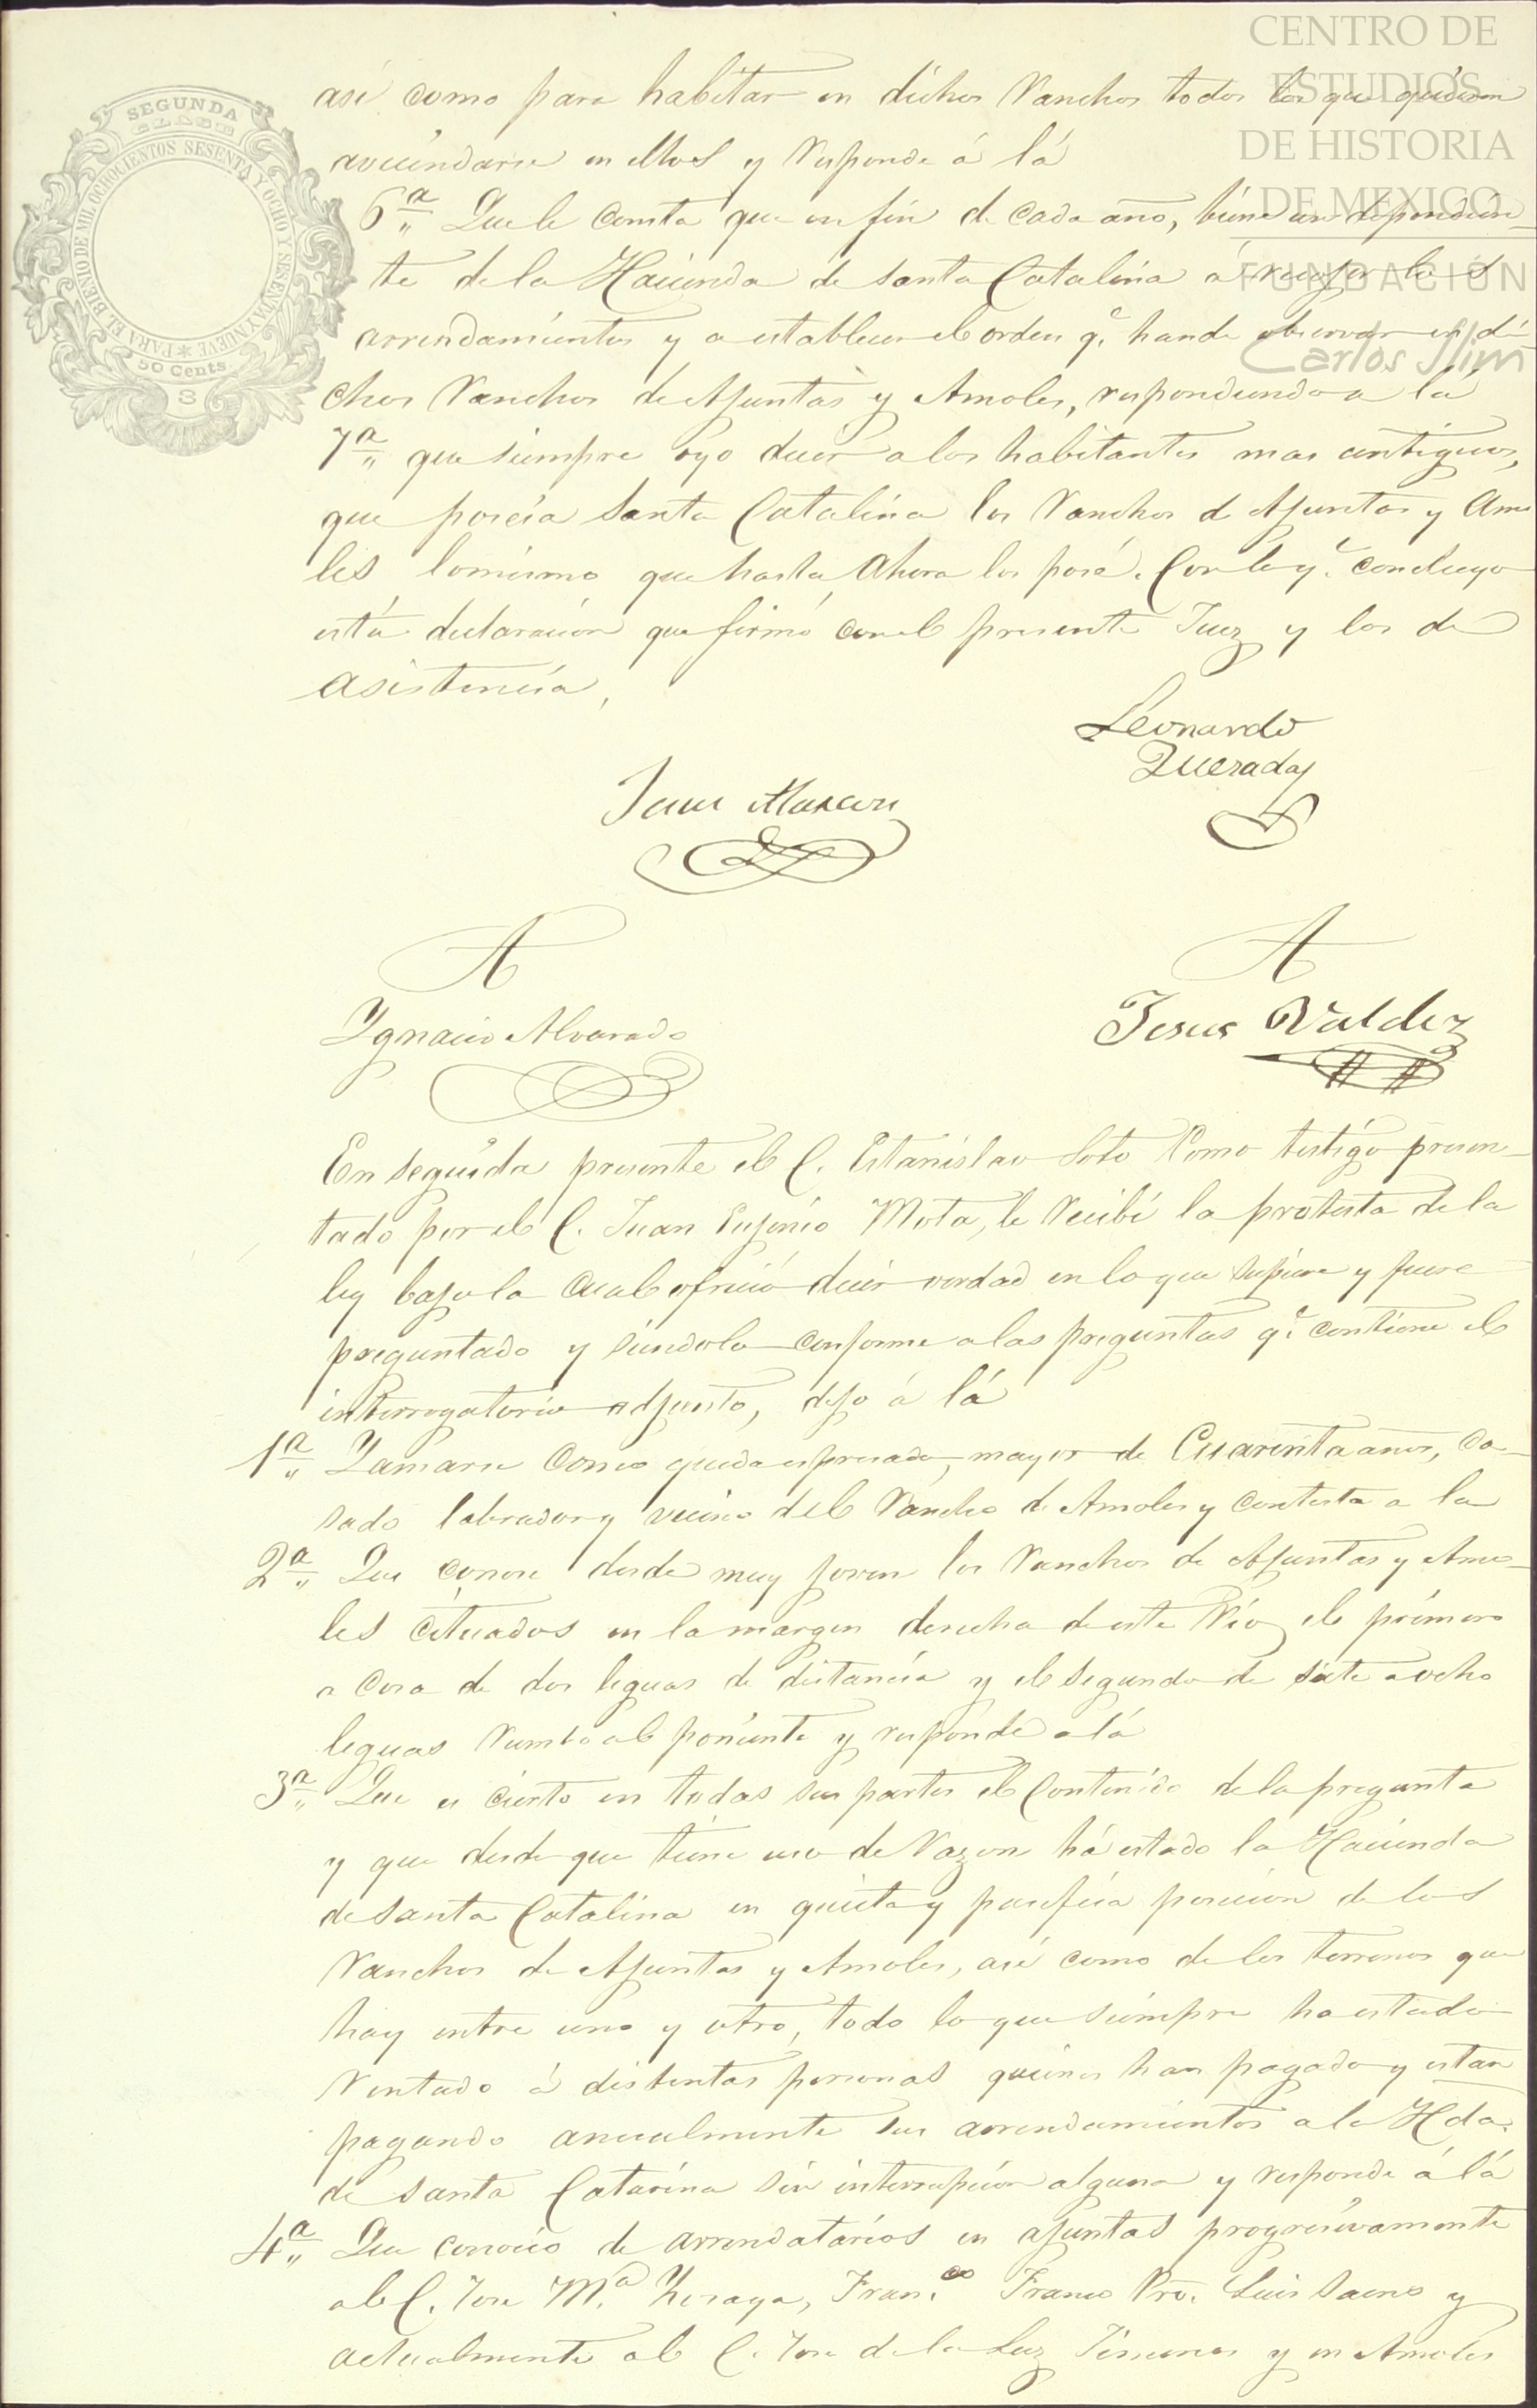 CENTRO DE
ESTUDIOS
DE HISTORIA
DE MEXICO
FUNDACIÓN
Carlos Slim
SEGUNDA
CLASE
PARA EL BIENIO DE MIL OCHOCIENTOS SESENTA Y OCHO Y SESENTA Y NUEVE
50 Cents.
así como para habitar en dichos Ranchos todos los que quieran
avecindarse en ellos y responde á lá
6ª Que le consta que en fin de cada año, biene un dependien-
te de la Hacienda de santa Catalina a recojer los
arrendamientos y a establecer el orden q.e han de observar en di-
chos Ranchos de Ajuntas y Amoles, respondiendo a la
7ª que siempre oyo decir a los habitantes mas antiguos,
que poseia Santa Catalina los Ranchos de Ajuntas y Amo
les lo mismo que hasta Ahora los posé. Con lo q.e concluyo
está declaracion que firmó con el presente Juez y los de
asistencia,
Leonardo
Quezada
Juan
A
A
Ygnacio Alvarado
Jesus Valdez
En seguida presente el C. Estanislao Soto Como testigo presen-
tado por el C. Juan Eujenio Mota, le recibí la protesta de la
ley bajo la cual ofreció decir verdad en lo que supiere y fuere
preguntado y siendolo conforme a las preguntas q.e contiene el
interrogatorio adjunto, dijo á lá
1ª Llamarse Como queda espresado, mayor de Cuarenta años, ca-
sado labrador y vecino del Rancho de Amoles y contesta a la
2ª Que conose desde muy joven los Ranchos de Ajuntas y Amo-
les cituados en la margen derecha de este Rio, el primero
a cosa de dos leguas de distancia y el segundo de siete a ocho
leguas rumbo al poniente y responde a lá
3ª Que es cierto en todas sus partes el Contenido de la pregunta
y que desde que tiene uso de Razon há estado la Hacienda
de santa Catalina en quieta y pacifica posecion de los
Ranchos de Ajuntas y Amoles, asi como de los terrenos que
hay entre uno y otro, todo lo que siempre ha estado
Rentado á distintas personas quienes han pagado y estan
pagando anualmente sus arrendamientos a la Hda.
de santa Catarina sin interrupcion alguna y responde á lá
4ª Que conocio de arrendatarios en ajuntas progresivamente
al C. Jose M.a Fran.co Franco Luis Saens y
actualmente al C. Jose de la Luz y en Amoles